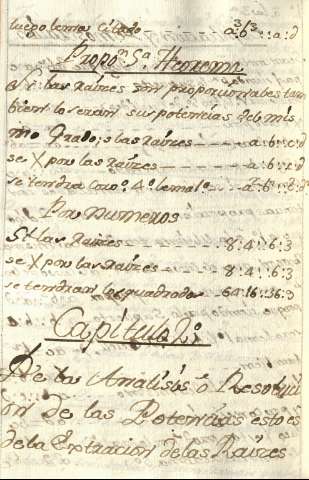 luego lema citado a³b³::a:d
Propoⁿ 5ª Theorema
Si las raizes son proporcionales tam
bien lo seran sus potencias del mis
mo Grado; s las Raizes ---- a:b::c:d
se X por las Raizes ---- a:b::c:d
se tendra
Por Numeros
Si las Raizes ---- 8:4::6:3
se X por las Raizes ---- 8:4::6:3
se tendran los quadrados -- 64:16::36:3
Capitulo 2º
De la Analisis ó Resoluci
on de las Potencias esto es
de la Extracion de las Raizes